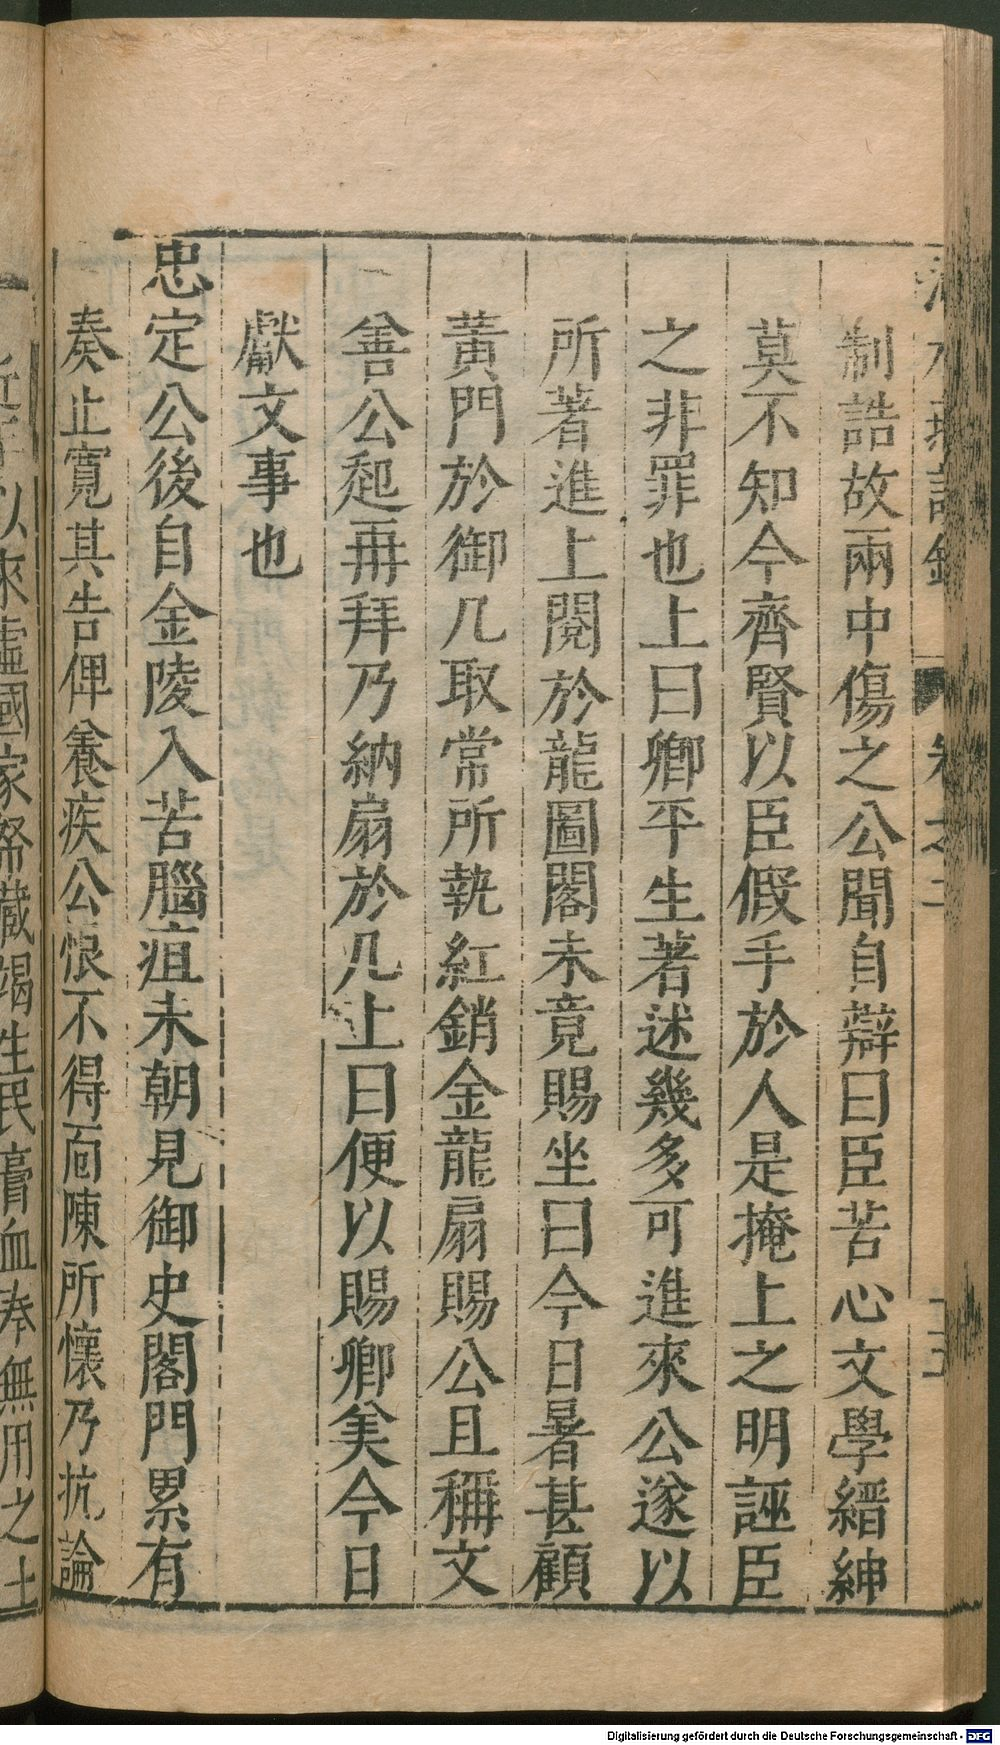 制誥故兩中傷之公聞自辯曰臣苦心文學縉紳
莫不知今齊賢以臣假手於人是掩上之明誣臣
之非罪也上曰卿平生著述幾多可進來公遂以
所著進上閱於龍圖閣未竟賜坐曰今日暑甚顧
黃門於御几取常所執紅銷金龍扇賜公且稱文
善公起再拜乃納扇於几上曰便以賜卿美今日
獻文事也
忠定公後自金陵入苦腦疽未朝見御史閤門累有
奏止寬其告俾養疾公恨不得面陳所懷乃抗論
以來虛國家帑藏竭生民膏血奉無用之土
Digitalisierung gefördert durch die Deutsche Forschungsgemeinschaft - DFG